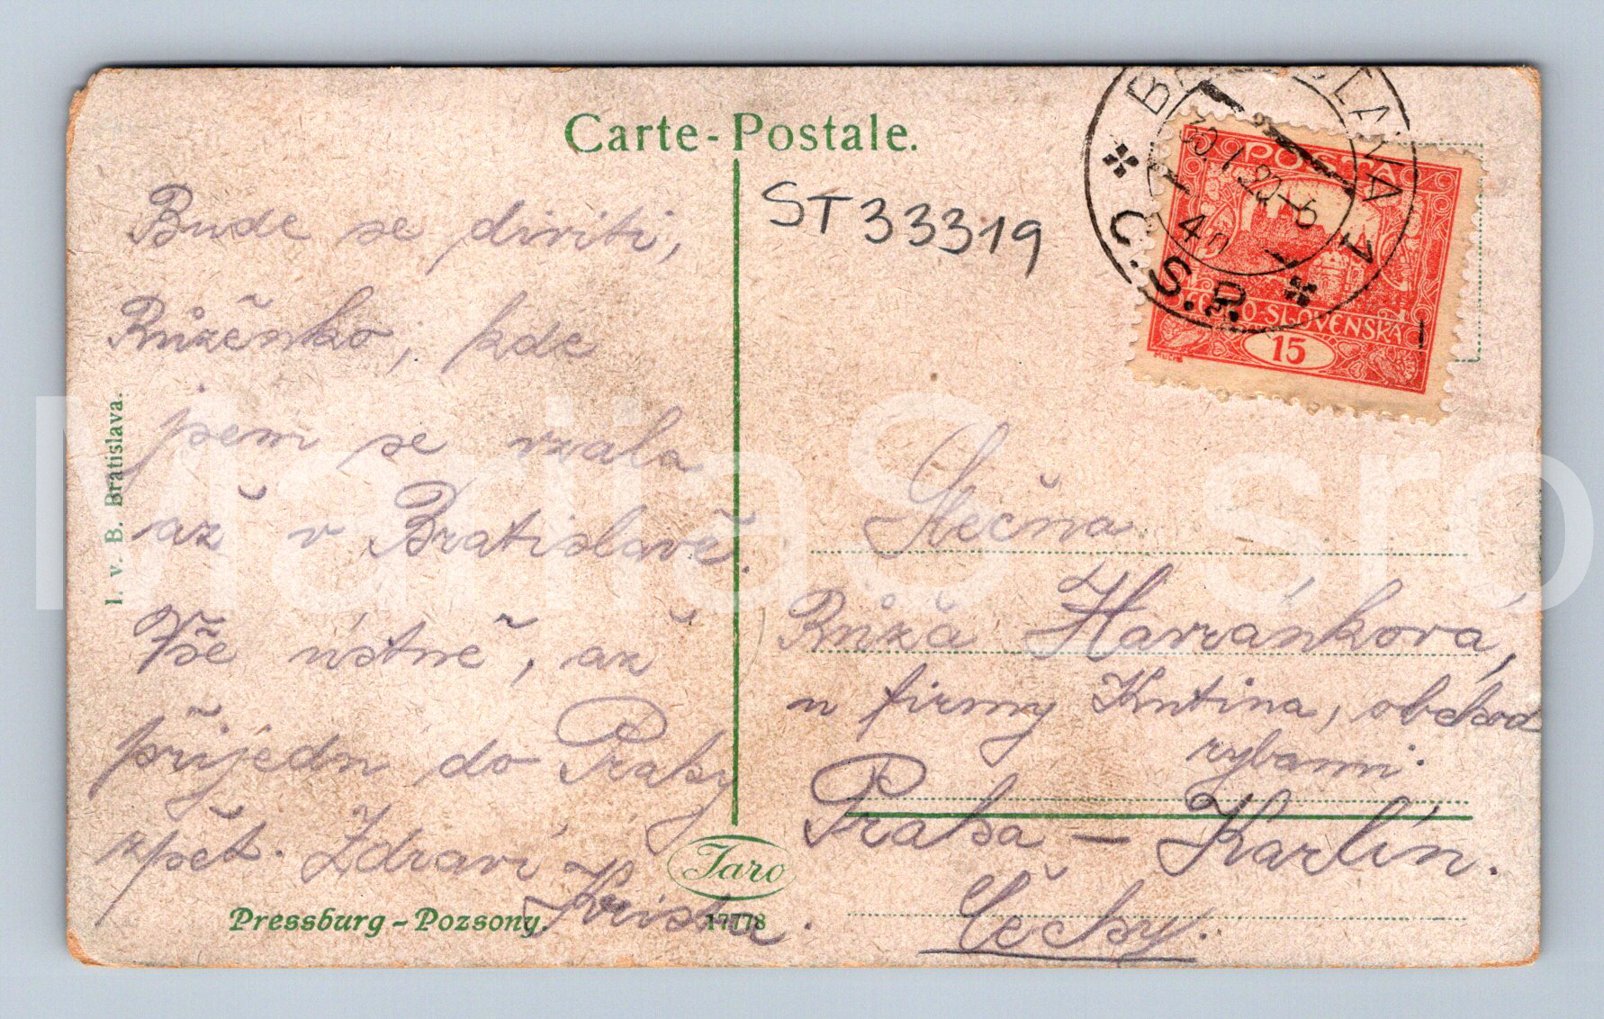 Carte-Postale.
ST33319
BRATISLAVA 1
Č.S.P.
POŠTA
ČESKO-SLOVENSKÁ
15
Bude se diviti,
Růženko, kde
jsem se vzala
až v Bratislavě.
Vše ústně, až
přijedu do Prahy
zpět. Zdraví
Krista.
I. v. B. Bratislava.
Pressburg-Pozsony.
Taro
17178
Slečna
Růža Havránková,
u firmy Kutina, obchod
rybami.
Praha - Karlín.
Čechy.
MaritaS sro